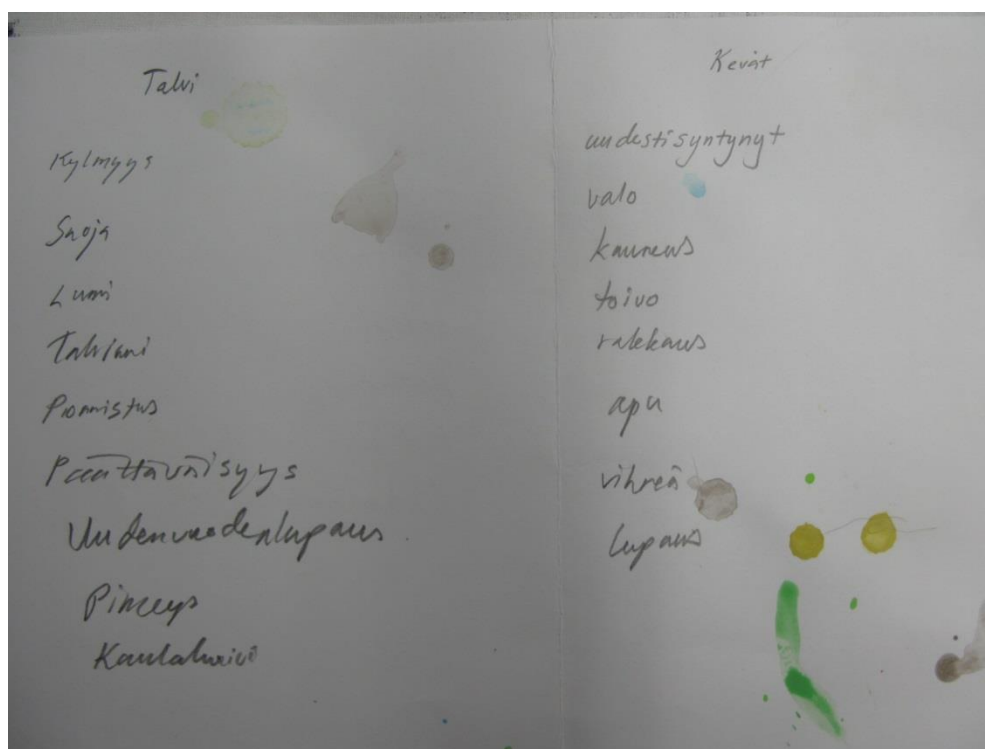 Talvi
Kylmyys
Suoja
Lumi
Ponnistus
Päättäväisyys
Uudenvuodenlupaus
Pimeys
Kaulahuivi
Kevät
uudestisyntynyt
valo
kauneus
toivo
rakkaus
apu
vihreä
lupaus